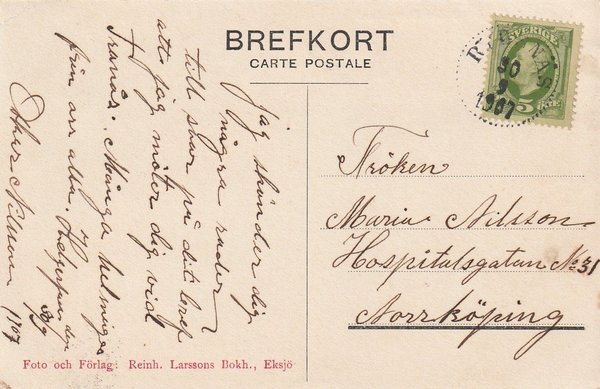 BREFKORT
CARTE POSTALE
SVERIGE
5 ÖRE
30
9
1907
Jag sänder dig
några rader
till svar på ditt bref
att jag möter dig vid
Tranås. Många helsningar
från oss alla. den
30/9
Nilsson 1907
Fröken
Maria Nilsson
Hospitalsgatan No 31
Norrköping
Foto och Förlag: Reinh. Larssons Bokh., Eksjö